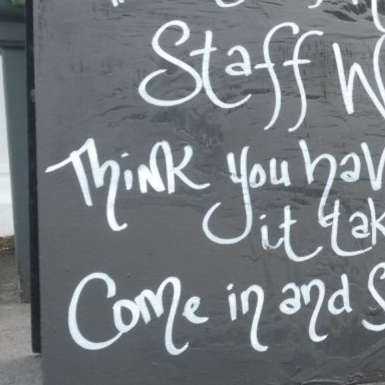 Staff W
Think you hav
it tak
Come in and S